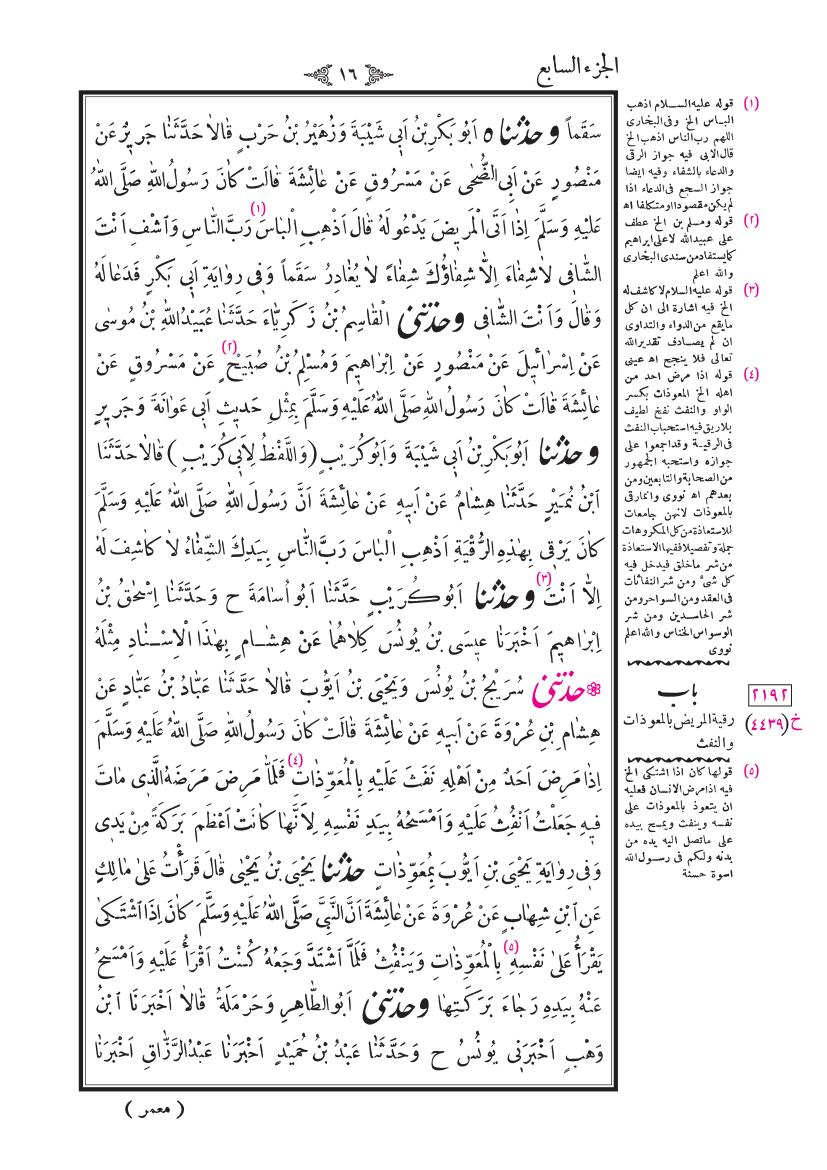 الجزء السابع
١٦
سَقَماً وحدثنا ٥ اَبُو بَكْرِ بْنُ اَبِى شَيْبَةَ وَزُهَيْرُ بْنُ حَرْبٍ قَالَا حَدَّثَنَا جَرِيرٌ عَنْ
مَنْصُورٍ عَنْ اَبِى الضُّحٰى عَنْ مَسْرُوقٍ عَنْ عَائِشَةَ قَالَتْ كَانَ رَسُولُ اللهِ صَلَّى اللهُ
عَلَيْهِ وَسَلَّمَ اِذَا اَتَى الْمَرِيضَ يَدْعُو لَهُ قَالَ اَذْهِبِ الْبَاسَ (١) رَبَّ النَّاسِ وَاَشْفِ اَنْتَ
الشَّافِى لَا شِفَاءَ اِلَّا شِفَاؤُكَ شِفَاءً لَا يُغَادِرُ سَقَماً وَفِى رِوَايَةِ اَبِى بَكْرٍ فَدَعَا لَهُ
وَقَالَ وَاَنْتَ الشَّافِى وحدثنى الْقَاسِمُ بْنُ زَكَرِيَّاءَ حَدَّثَنَا عُبَيْدُاللهِ بْنُ مُوسٰى
عَنْ اِسْرَائِيلَ عَنْ مَنْصُورٍ عَنْ اِبْرَاهِيمَ وَمُسْلِمُ بْنُ صُبَيْحٍ (٢) عَنْ مَسْرُوقٍ عَنْ
عَائِشَةَ قَالَتْ كَانَ رَسُولُ اللهِ صَلَّى اللهُ عَلَيْهِ وَسَلَّمَ بِمِثْلِ حَدِيثِ اَبِى عَوَانَةَ وَجَرِيرٍ
وحدثنا اَبُو بَكْرِ بْنُ اَبِى شَيْبَةَ وَاَبُو كُرَيْبٍ (وَاللَّفْظُ لِاَبِى كُرَيْبٍ) قَالَا حَدَّثَنَا
ابْنُ نُمَيْرٍ حَدَّثَنَا هِشَامٌ عَنْ اَبِيهِ عَنْ عَائِشَةَ اَنَّ رَسُولَ اللهِ صَلَّى اللهُ عَلَيْهِ وَسَلَّمَ
كَانَ يَرْقِى بِهٰذِهِ الرُّقْيَةِ اَذْهِبِ الْبَاسَ رَبَّ النَّاسِ بِيَدِكَ الشِّفَاءُ لَا كَاشِفَ لَهُ
اِلَّا اَنْتَ (٣) وحدثنا اَبُو كُرَيْبٍ حَدَّثَنَا اَبُو اُسَامَةَ ح وَحَدَّثَنَا اِسْحٰقُ بْنُ
اِبْرَاهِيمَ اَخْبَرَنَا عِيسَى بْنُ يُونُسَ كِلَاهُمَا عَنْ هِشَامٍ بِهٰذَا الْاِسْنَادِ مِثْلَهُ
حدثنى سُرَيْجُ بْنُ يُونُسَ وَيَحْيَى بْنُ اَيُّوبَ قَالَا حَدَّثَنَا عَبَّادُ بْنُ عَبَّادٍ عَنْ
هِشَامِ بْنِ عُرْوَةَ عَنْ اَبِيهِ عَنْ عَائِشَةَ قَالَتْ كَانَ رَسُولُ اللهِ صَلَّى اللهُ عَلَيْهِ وَسَلَّمَ
اِذَا مَرِضَ اَحَدٌ مِنْ اَهْلِهِ نَفَثَ عَلَيْهِ بِالْمُعَوِّذَاتِ (٤) فَلَمَّا مَرِضَ مَرَضَهُ الَّذِى مَاتَ
فِيهِ جَعَلْتُ اَنْفُثُ عَلَيْهِ وَاَمْسَحُهُ بِيَدِ نَفْسِهِ لِاَنَّهَا كَانَتْ اَعْظَمَ بَرَكَةً مِنْ يَدِى
وَفِى رِوَايَةِ يَحْيَى بْنِ اَيُّوبَ بِمُعَوِّذَاتٍ حدثنا يَحْيَى بْنُ يَحْيٰى قَالَ قَرَأْتُ عَلٰى مَالِكٍ
عَنِ ابْنِ شِهَابٍ عَنْ عُرْوَةَ عَنْ عَائِشَةَ اَنَّ النَّبِىَّ صَلَّى اللهُ عَلَيْهِ وَسَلَّمَ كَانَ اِذَا اشْتَكٰى
يَقْرَأُ عَلٰى نَفْسِهِ (٥) بِالْمُعَوِّذَاتِ وَيَنْفُثُ فَلَمَّا اشْتَدَّ وَجَعُهُ كُنْتُ اَقْرَأُ عَلَيْهِ وَاَمْسَحُ
عَنْهُ بِيَدِهِ رَجَاءَ بَرَكَتِهَا وحدثنى اَبُو الطَّاهِرِ وَحَرْمَلَةُ قَالَا اَخْبَرَنَا ابْنُ
وَهْبٍ اَخْبَرَنِى يُونُسُ ح وَحَدَّثَنَا عَبْدُ بْنُ حُمَيْدٍ اَخْبَرَنَا عَبْدُ الرَّزَّاقِ اَخْبَرَنَا
( معمر )
(١) قوله عليه السلام اذهب
الباس الخ وفى البخارى
اللهم رب الناس اذهب الخ
قال الابى فيه جواز الرقى
والدعاء بالشفاء وفيه ايضا
جواز السجع فى الدعاء اذا
لم يكن مقصودا ومتكلفا اه
(٢) قوله ومسلم بن الخ عطف
على عبيدالله لا على ابراهيم
كما يستفاد من سندى البخارى
والله اعلم
(٣) قوله عليه السلام لا كاشف له
الخ فيه اشارة الى ان كل
ما يقع من الدواء والتداوى
ان لم يصادف تقدير الله
تعالى فلا ينجع اه عينى
(٤) قوله اذا مرض احد من
اهله الخ المعوذات بكسر
الواو والنفث نفخ لطيف
بلا ريق فيه استحباب النفث
فى الرقية وقد اجمعوا على
جوازه واستحبه الجمهور
من الصحابة والتابعين ومن
بعدهم اه نووى وانما رقى
بالمعوذات لانهن جامعات
للاستعاذة من كل المكروهات
جملة وتفصيلا ففيها الاستعاذة
من شر ما خلق فيدخل فيه
كل شئ ومن شر النفاثات
فى العقد ومن السواحر ومن
شر الحاسدين ومن شر
الوسواس الخناس والله اعلم
نووى
باب
٢١٩٢
رقية المريض بالمعوذات
خ (٤٤٣٩)
والنفث
(٥) قولها كان اذا اشتكى الخ
فيه اذا مرض الانسان فعليه
ان يتعوذ بالمعوذات على
نفسه وينفث ويمسح بيده
على ماتصل اليه يده من
بدنه ولكم فى رسول الله
اسوة حسنة